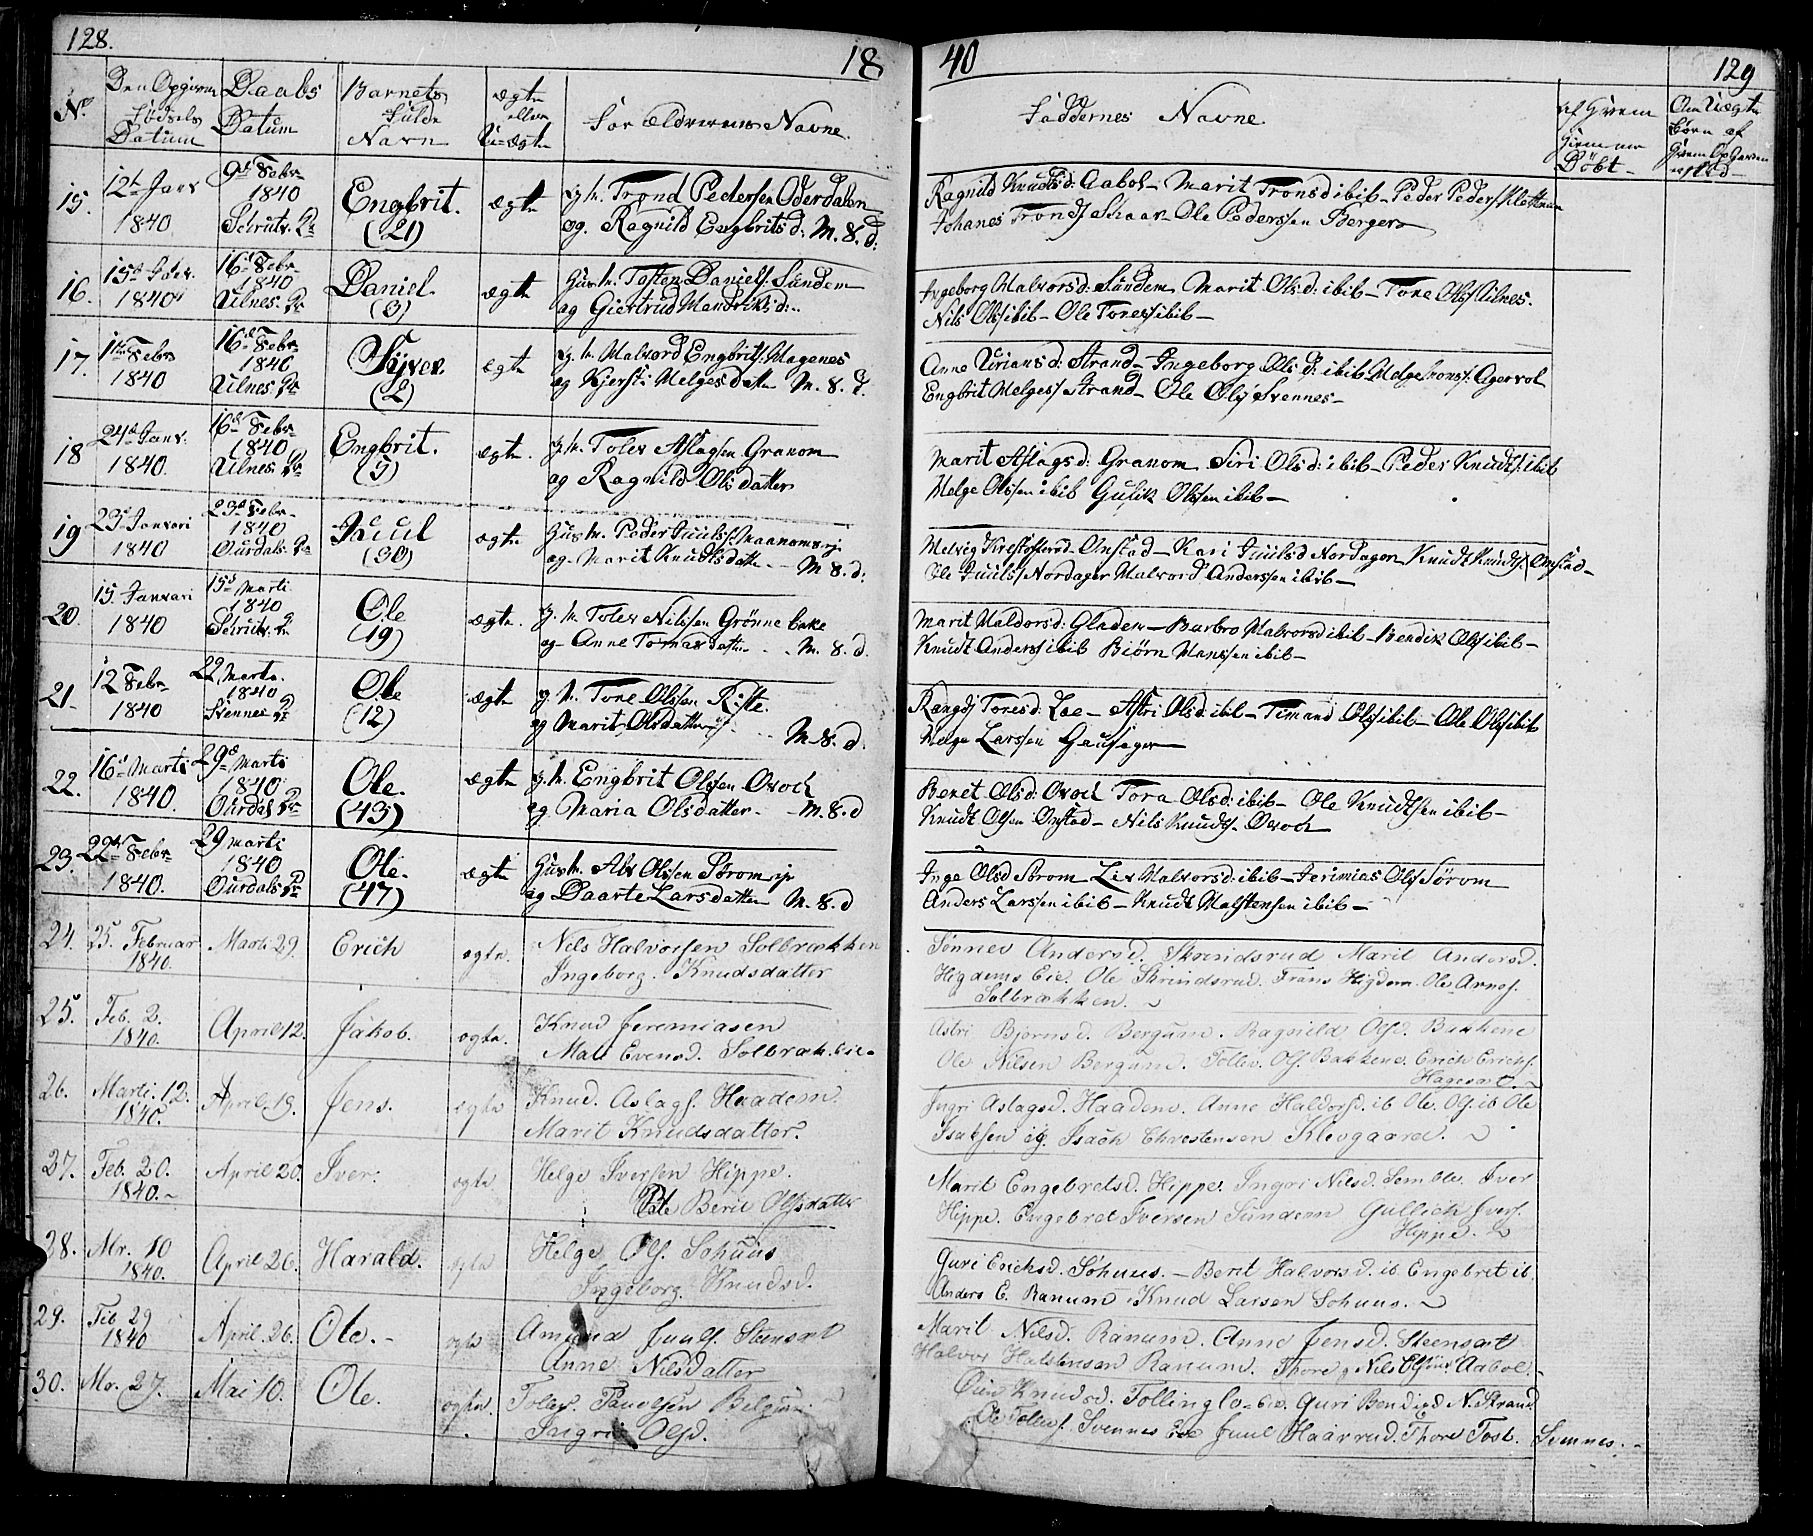 128.
18 40
129
No
Den Opgivne Fødsels Datum
Daabs Datum
Barnets Fulde Navn
Ægte eller Uægte
Forældrenes Navne.
Faddernes Navne
Døbt
15. 12t Janv 1840 9de Febr 1840 Engbrit. (21) ægte g. k. Trond Pedersen Oderdalen
og. Ragnild Engbrits d: M. 8. d:
Ragnild Knudts d: Aabol - Marit Trons d ibib - Peder Peders/ Klettnæs
Johanes Tronds/ Skaar - Ole Pederssen Berger
16. 1840 16d Febr 1840 Ulnes. Daniel. (3) ægte Husm. Tosten Daniels/. Sundem
og Giertrud Hendriks d:
Ingeborg Halvors d: Sundem Marit Ols d: ibib - Tore Ols/ Ulnes.
Nils Ols/ ibib - Ole Tores/ ibib -
17. Febr 1840 16d Febr 1840 Ulnes Iver (2) ægte g. k. Halvord Engbrits/. Hagenes
og Kjersti Helges datter M. 8. d.
Anne Urians d: Strand - Ingeborg Ols d: ibib - Helge Agervol
Engbrit Helges/ Strand - Ole Ols/ Svennes -
18 24d Janv. 1840. 16d Febr 1840 Ulnes Engbrit. ægte. g. k. Tolev Aslagsen Granom
og Ragnild Ols datter
Marit Aslags d: Granom Siri Ols d: ibib - Peder Knudts/. ibib
Helge Olssen ibib Gulik Olssen ibib -
19 23d Januari 1840 23d Febr 1840 Ourdals Juul (30) ægte Husm. Peder Juuls/.
og Marit Knudts datter - M. 8. d:
Helvig Kristofersd - Onstad - Kari Juulsd Nordager Knudt Knudts/. Onstad -
Ole Juuls/ Nordager Halvord Anderssen ibib -
20. 15. Januari 1840 15d Marti 1840 Ole (19) ægte. g. k. Tolev Nilssen Grønne bake
og Anne Tomas datter - M. 8. d.
Marit Haldors d: Gladen - Barbro Halvors d ibib - Bendik Ols/ ibib -
Knudt Anders/ ibib Biørn Hanssen ibib -
21 12 Febr 1840 22 Marti. 1840 Svennes Ole (12) ægte g. k. Tore Olssen Riste.
og Marit Olsdatter M. 8. d.
Rangdj Tores d. Loe - Astri Ols d. ibib - Timand Ols/ ibib - Ole Ols/ ibib
Helge Larssen Gausager
22. 16d Marti 1840. 29d Marti 1840 Ourdal Ole. (43) ægte g. k. Engbrit Olssen Qvoch
og Maria Olsdatter - M. 8. d
Beret Ols d: Qvoch Tora Ols d: ibib - Ole Knudtsen ibib -
Knudt Olsen Onstad - Nils Knudts. Qvoch
23. 22d Febr 1840. 29 Marti 1840 Ourdals Ole. (47) ægte Husm. Alv Olssen
og Daarte Larsdatter M. 8. d
Inge Olsd Strom Liv Halvors d: ibib - Jerimias Ols/ Sørom
Anders Larssen ibib - Knudt Halstensen ibib -
24. 25. Februar 1840. Marti 29. Erich ægte. Nils Halvorsen Solbrækken
Ingeborg. Knudsdatter
Sønnev Andersd. Skrindsrud Marit Andersd.
Higdems Eie. Ole Skrindsrud. Frans Higdem. Ole Arnes/.
Solbrækken.
25. Feb. 2. 1840. April 12. Jakob. ægte. Knud Jeremiasen
Mali Evensd. Solbræk. Eie.
Astri Bjørnsd. Bergum. Ragnild Olsd. Bakkene
Ole Nilsen Bergum. Tollev. Ols/. Bakkene. Erich Erichs/.
26. Marti. 12. 1840. April. 19. Jens. ægte Knud. Aslags/. Haadem.
Marit Knudsdatter.
Ingri Aslagsd. Haadem. Anne Haldorsd. ib Ole. Ols/. ib Ole
Isaksen ig. Isach Christensen Klevgaard.
27. Feb. 20. 1840. April 20. Iver. ægte Helge Iversen Hippe.
Berit Olsdatter
Marit Engebretsd. Hippe. Ingri Nilsd. Semble. Iver
Hippe. Engebret Iversen Sundem Gullich Ivers/.
Hippe.
28. Mr. 10 1840. April 26. Harald. ægte Helge Ols/. Sohuus
Ingeborg. Knudsd.
Guri Erichsd. Sohuus. - Berit Halvorsd. ib. Engebrit ib.
Anders E. Ranum Knud Larsen Sohuus.
29. Feb 29 1840 April. 26. Ole. - ægte Amund Juuls/. Stensæt
Anne Nilsdatter
Marit Nilsd. Ranum. Anne Jensd. Steensæt
Halvor Halstensen Ranum. Thore, Nils Aabol.
30. Mr. 27. Mai 10. Ole. ægte. Tolev. Paulsen Belgum
Ingri Olsd.
Knudsd. Tollinglo. Eie. Guri Bendixd N. Strand
Ole Tollevs/. Svennes Eie Juul Haarrud. Thore Tost. Svennes.